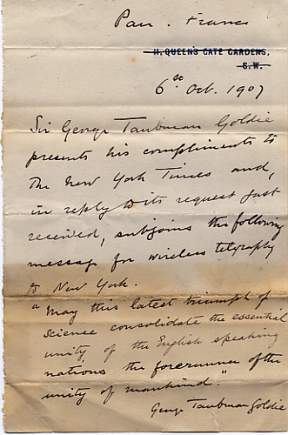 Pau. France
11, QUEEN'S GATE GARDENS,
S.W.
6th Oct. 1907
Sir George Taubman Goldie
presents his compliments to
The New York Times and,
in reply to its request just
received, subjoins the following
message for wireless telegraphy
to New York.
"May this latest triumph of
Science consolidate the essential
unity of the English speaking
nations the forerunner of the
unity of mankind."
George Taubman Goldie